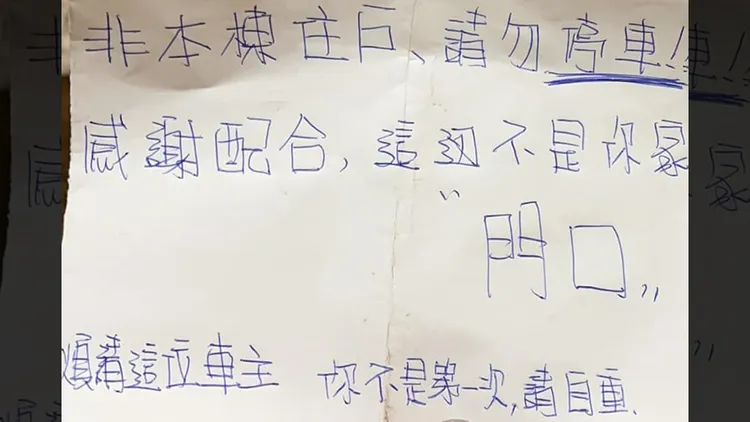 非本棟住戶、請勿停車!
感謝配合, 這边不是你家
"門口"
煩請這位車主 你不是第一次, 請自重.